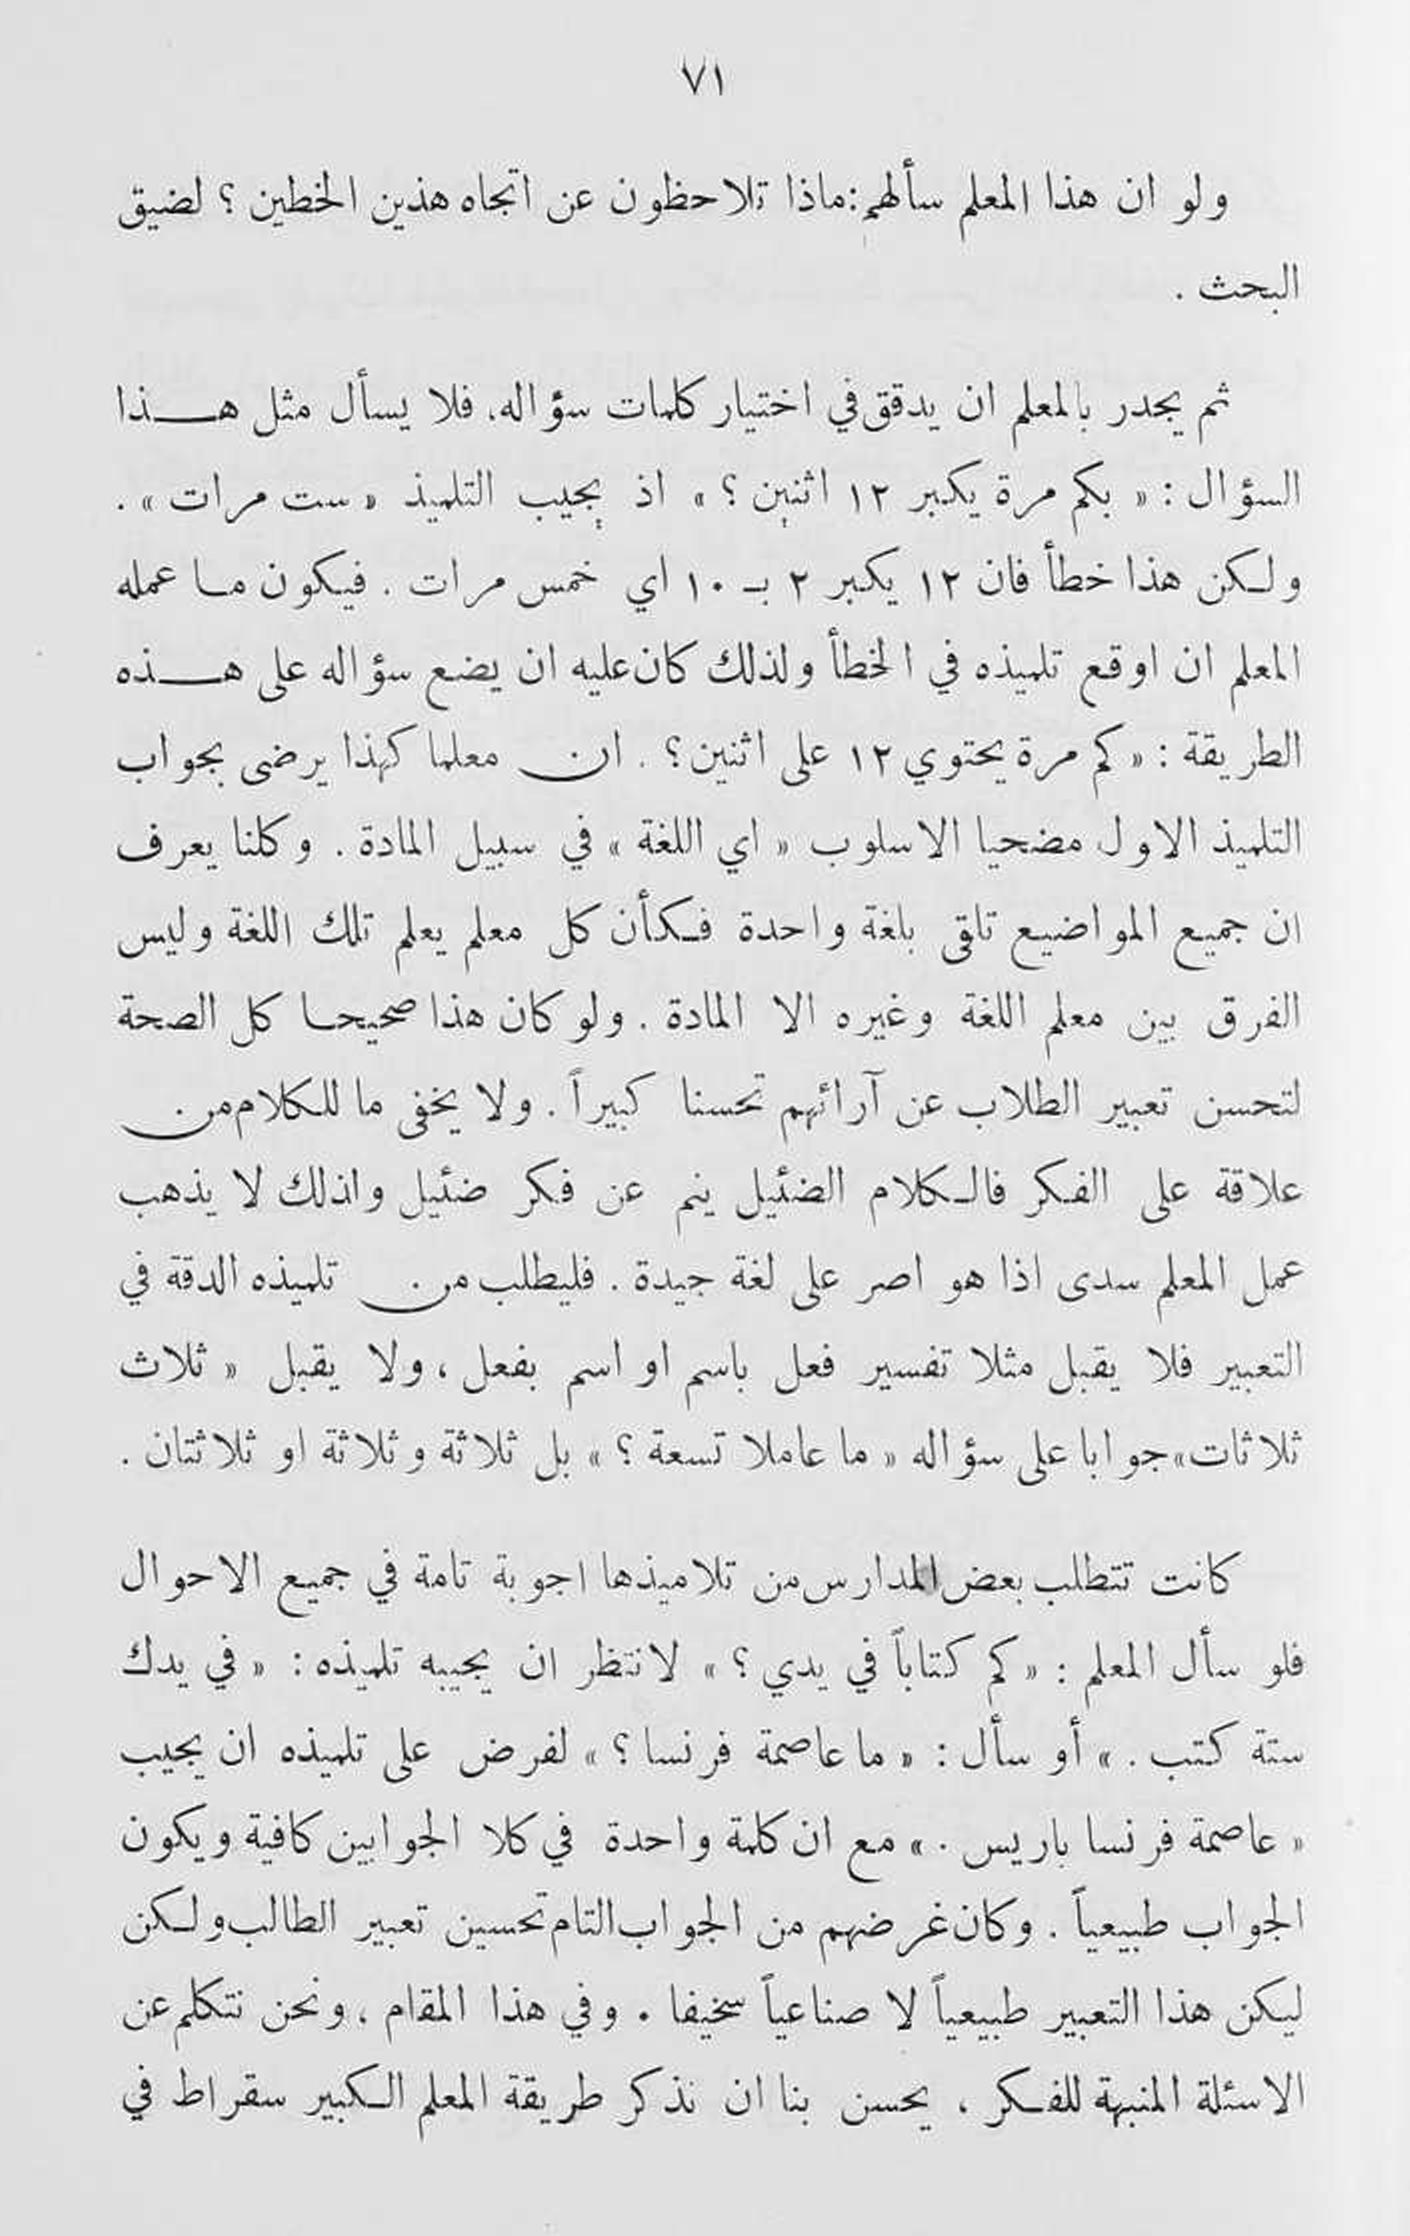 ٧١
ولو ان هذا المعلم سألهم:ماذا تلاحظون عن اتجاه هذين الخطين ؟ لضيق
البحث .
ثم يجدر بالمعلم ان يدقق في اختيار كلمات سؤاله، فلا يسأل مثل هـــذا
السؤال : « بكم مرة يكبر ١٢ اثنين ؟ » اذ يجيب التلميذ « ست مرات » .
ولكن هذا خطأ فان ١٢ يكبر ٢ بـ ١٠ اي خمس مرات . فيكون ما عمله
المعلم ان اوقع تلميذه في الخطأ ولذلك كان عليه ان يضع سؤاله على هـــذه
الطريقة : « كم مرة يحتوي ١٢ على اثنين ؟ . ان معلما كهذا يرضى بجواب
التلميذ الاول مضحيا الاسلوب « اي اللغة » في سبيل المادة . وكلنا يعرف
ان جميع المواضيع تلقى بلغة واحدة فكأن كل معلم يعلم تلك اللغة وليس
الفرق بين معلم اللغة وغيره الا المادة . ولو كان هذا صحيحا كل الصحة
لتحسن تعبير الطلاب عن آرائهم تحسنا كبيراً . ولا يخفى ما للكلام من
علاقة على الفكر فالكلام الضئيل ينم عن فكر ضئيل ولذلك لا يذهب
عمل المعلم سدى اذا هو اصر على لغة جيدة . فليطلب من تلميذه الدقة في
التعبير فلا يقبل مثلا تفسير فعل باسم او اسم بفعل ، ولا يقبل « ثلاث
ثلاثات » جوابا على سؤاله « ما عاملا تسعة ؟ » بل ثلاثة وثلاثة او ثلاثتان .
كانت تتطلب بعض المدارس من تلاميذها اجوبة تامة في جميع الاحوال
فلو سأل المعلم : « كم كتاباً في يدي ؟ » لانتظر ان يجيبه تلميذه : « في يدك
ستة كتب . » أو سأل : « ما عاصمة فرنسا ؟ » لفرض على تلميذه ان يجيب
« عاصمة فرنسا باريس . » مع ان كلمة واحدة في كلا الجوابين كافية ويكون
الجواب طبيعياً . وكان غرضهم من الجواب التام تحسين تعبير الطالب ولكن
ليكن هذا التعبير طبيعياً لا صناعياً سخيفا . وفي هذا المقام ، ونحن نتكلم عن
الاسئلة المنبهة للفكر ، يحسن بنا ان نذكر طريقة المعلم الكبير سقراط في